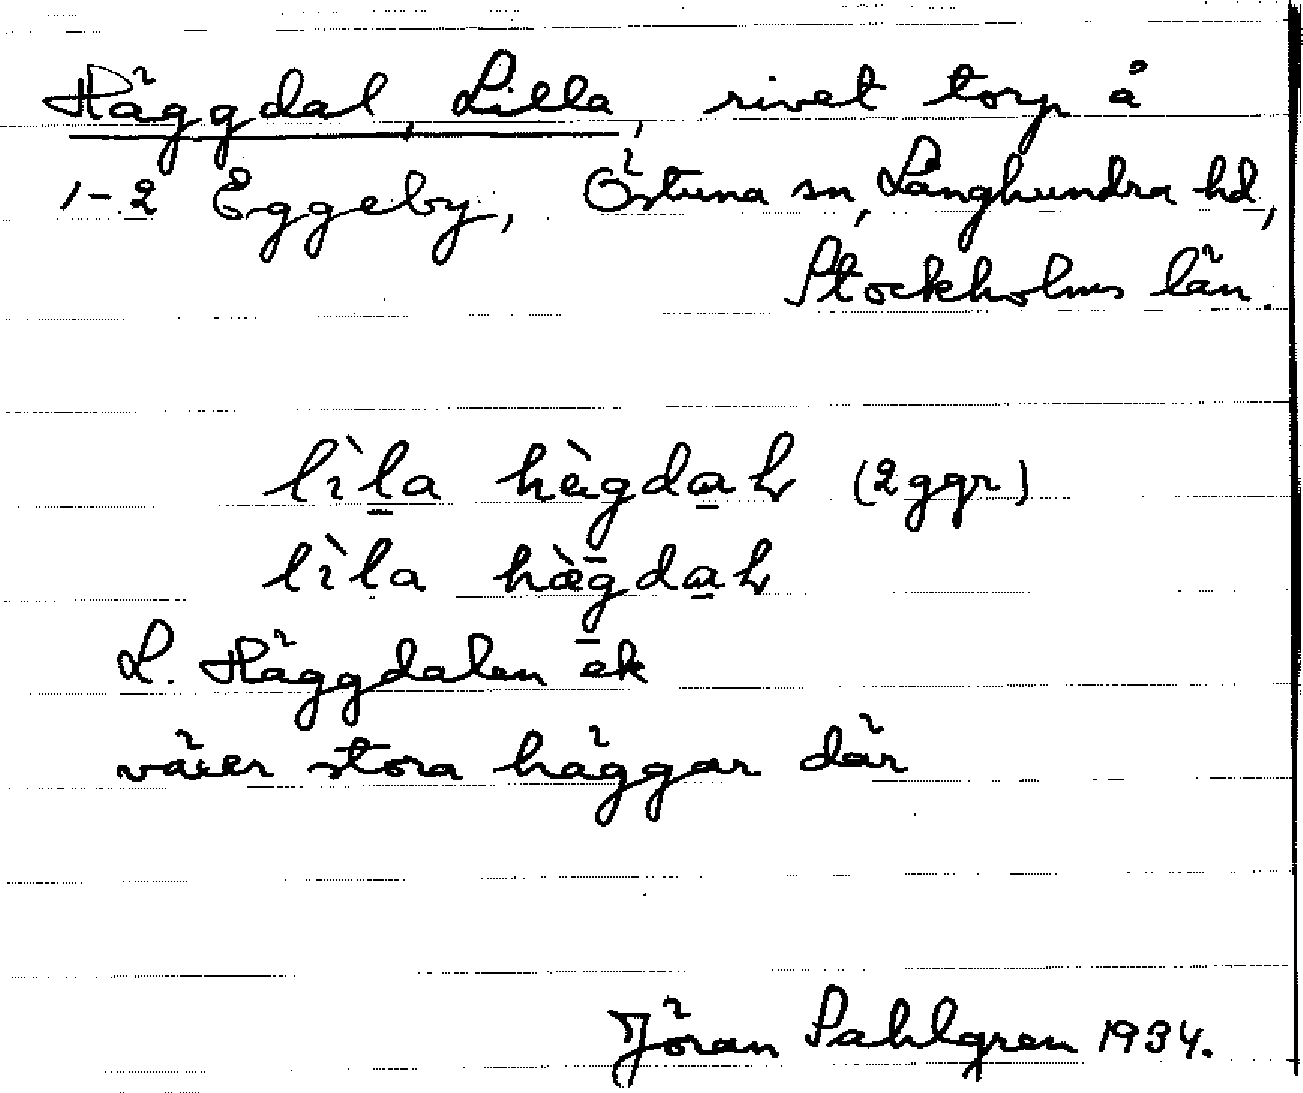 Häggdal, Lilla, rivet torp å
1-2 Eggeby, Östuna sn, Långhundra hd,
Stockholms län.
lìl̠a hàgda̠l (2 ggr)
lìla hæ̀gda̠l
L. Häggdalen ēk
växer stora häggar där
Jöran Sahlgren 1934.